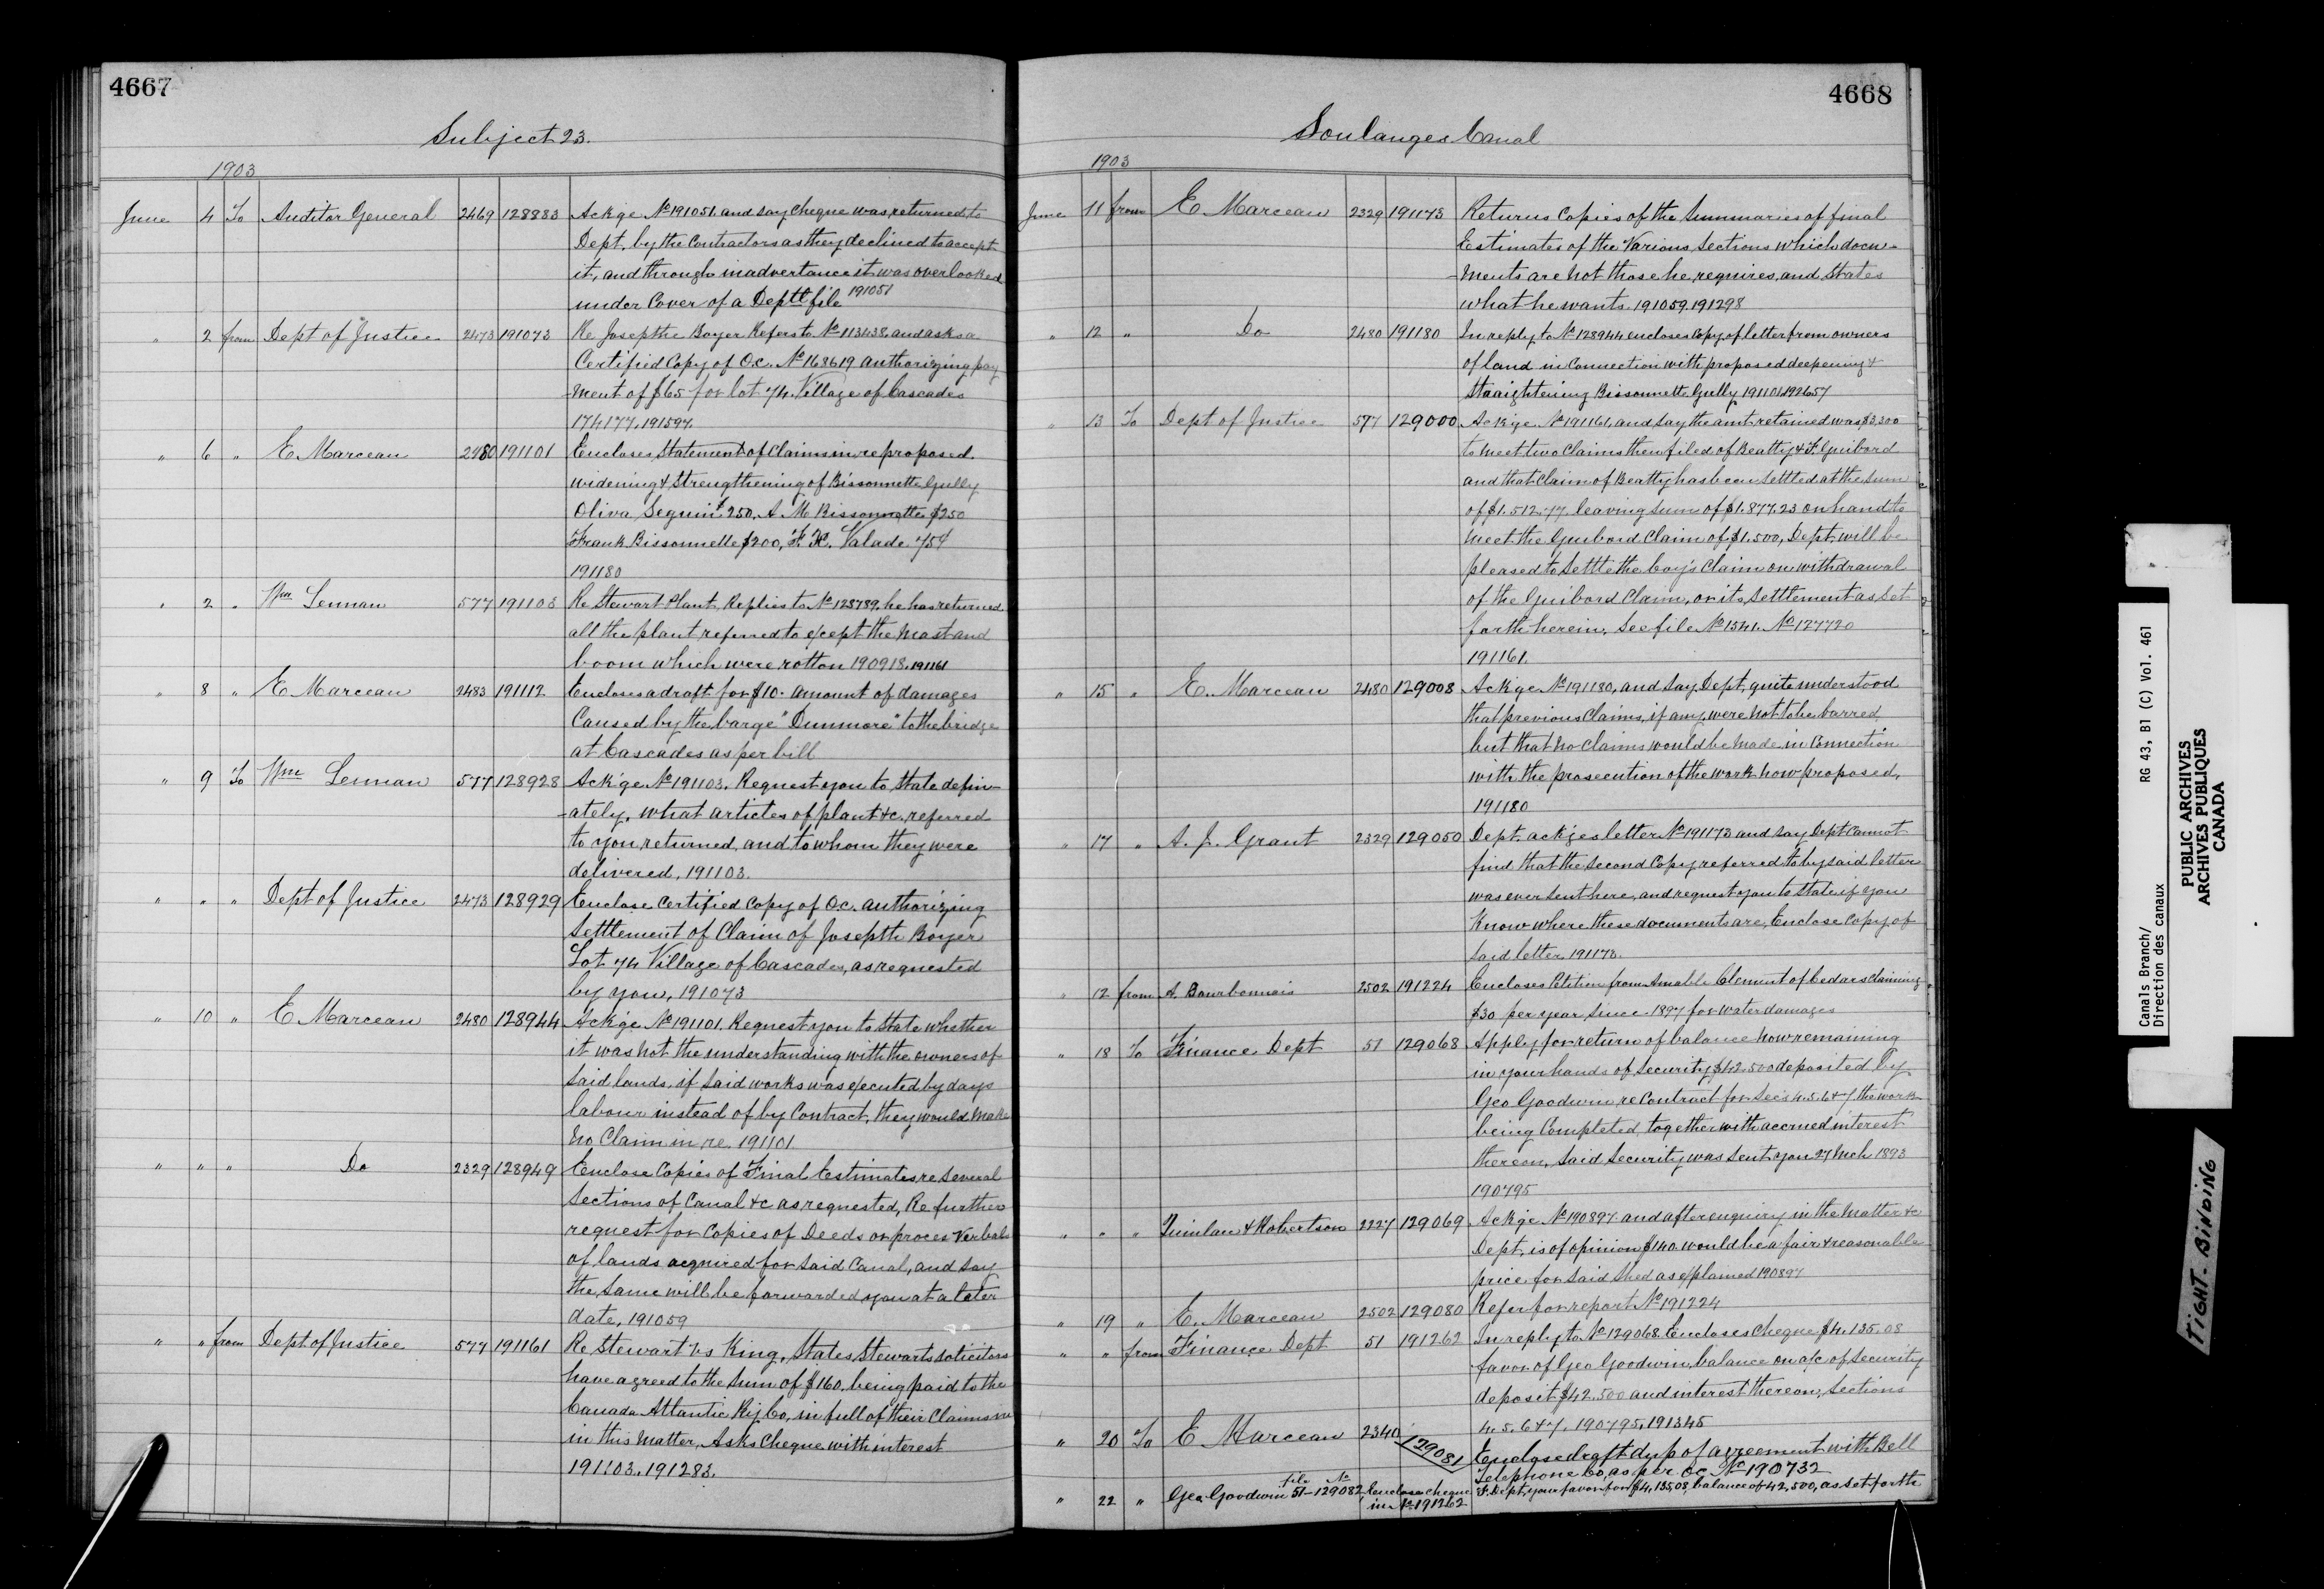 4667
Subject 23.
1903
June 4 To Auditor General 2469 128883 Ackge No 191051. and say cheque was returned to
Dept. by the Contractors as they declined to accept
it, and through inadvertance it was overlooked
under Cover of a Deptl file 191051
" 2 from Dept of Justice 2473 191073 Re Josepthe Boyer Refers to No 113438. and asks a
Certified Copy of O.C. No 168619 authorizing pay
-ment of $65 for lot 74. Village of Cascades
174177. 191597.
" 6 " E Marceau 2480 191101 Encloses Statement of Claims in re proposed
widening & Strengthening of Bissonnette Gully
Oliva Seguin $250, A. M. Bissonnette $250
Frank Bissonnette $200, F. X. Valade 75¢
191180
" 2 " Wm Lennan 577 191103 Re Stewart Plant. Replies to No 128789. he has returned
all the plant referred to except the mast and
boom which were rotton 190918. 191161
" 8 " E Marceau 2483 191112 Encloses a draft for $10. amount of damages
Caused by the barge "Dunmore" to the bridge
at Cascades as per bill
" 9 To Wm Lennan 577 128928 Ackge No 191103. Request you to state defin-
-ately, what articles of plant &c. referred
to you returned, and to whom they were
delivered, 191103.
" " " Dept of Justice 2473 128929 Enclose Certified Copy of O.C. authorizing
Setttlement of Claim of Josepth Boyer
Lot 74 Village of Cascades, as requested
by you, 191073
" 10 " E Marceau 2480 128944 Ackge No 191101. Request you to State whether
it was not the understanding with the owners of
said lands, if said works was executed by days
labour instead of by Contract, they would make
no Claim in re 191101
" " " Do 2329 128949 Enclose Copies of Final Estimates re several
Sections of Canal &c as requested, Re further
request for Copies of Deeds or proces Verbals
of lands acquired for said Canal, and say
the same will be forwarded you at a later
date, 191059
" " from Dept. of Justice 577 191161 Re Stewart vs King, States Stewarts solicitors
have agreed to the sum of $160. being paid to the
Canada Atlantic Ry Co, in full of their Claims in
in this matter, Asks Cheque with interest
191103. 191283.
4668
Soulanges Canal
1903
June 11 from E. Marceau 2329 191173 Returns Copies of the Summaries of final
Estimates of the Various Sections which docu-
-ments are not those he, requires, and States
what he wants 191059. 191298
" 12 " Do 2480 191180 In reply to No 128944 encloses Copy of letter from owners
of land in Connection with proposed deepening &
Straightening Bissonnette Gully 191101. 192657
" 13 To Dept of Justice 577 129000 Ackge No 191161, and say the amt retained was $3,300
to meet two Claims then filed of Beatty & F. Guibord
and that Claim of Beatty has been Setttled at the sum
of $1.512.77. leaving sum of $1.877.23 on hand to
meet the Guibord Claim of $1.500, Dept. will be
pleased to Setttle the Coy's Claim on withdrawal
of the Guibord Claim, or its Setttlement as set
forth herein, See file No 1541. No 127720
191161.
" 15 " E. Marceau 2480 129008 Ackge No 191180, and say Dept, quite understood
that previous Claims, if any, were not to be barred
but that no Claims would be made in Connection
with the prosecution of the work now proposed.
191180
" 17 " A. J. Grant 2329 129050 Dept. ackges letter No 191173 and say Dept Cannot
find that the second Copy referred to by said letter
was ever sent here, and request you to state if you
Know where these documents are, Enclose Copy of
said letter. 191173.
" 12 from A. Bourbonnais 2502 191224 Encloses Petition from Amable Clement of Cedars Claiming
$30 per year since 1897 for water damages
" 18 To Finance Dept 51 129068 Apply for return of balance now remaining
in your hands of Security $42.500 deposited by
Geo Goodwin re Contract for Sec's 4.5.6&7. the work
being Completed, together with accrued interest
thereon, said Security was sent you 27 Mch 1893
190795
" " " Quinlan & Robertson 2227 129069 Ackge No 190897 and after enquiry in the matter &c
Dept, is of opinion $140. would be a fair & reasonable
price for said shed as explained 190897
" 19 " E. Marceau 2502 129080 Refer for report No 191224
" " from Finance Dept 51 191262 In reply to No 129068. Encloses Cheque $4,135.08
favor of Geo Goodwin, balance on a/c of security
deposit $42.500 and interest thereon, Sections
4.5.6&7. 190795. 191345
" 20 To E Marceau 2340 129081 Enclose draft dup of agreement with Bell
Telephone Co, as per OC No 190732
" 22 " Geo. Goodwin file 51 - No 129082 Enclose cheque F. Dept, your favor for $4,135.08, balance of 42,500, as set forth
in No 191262
Canals Branch/
Direction des canaux
RG 43, B1 (C) Vol. 461
PUBLIC ARCHIVES
ARCHIVES PUBLIQUES
CANADA
TIGHT. BINDING